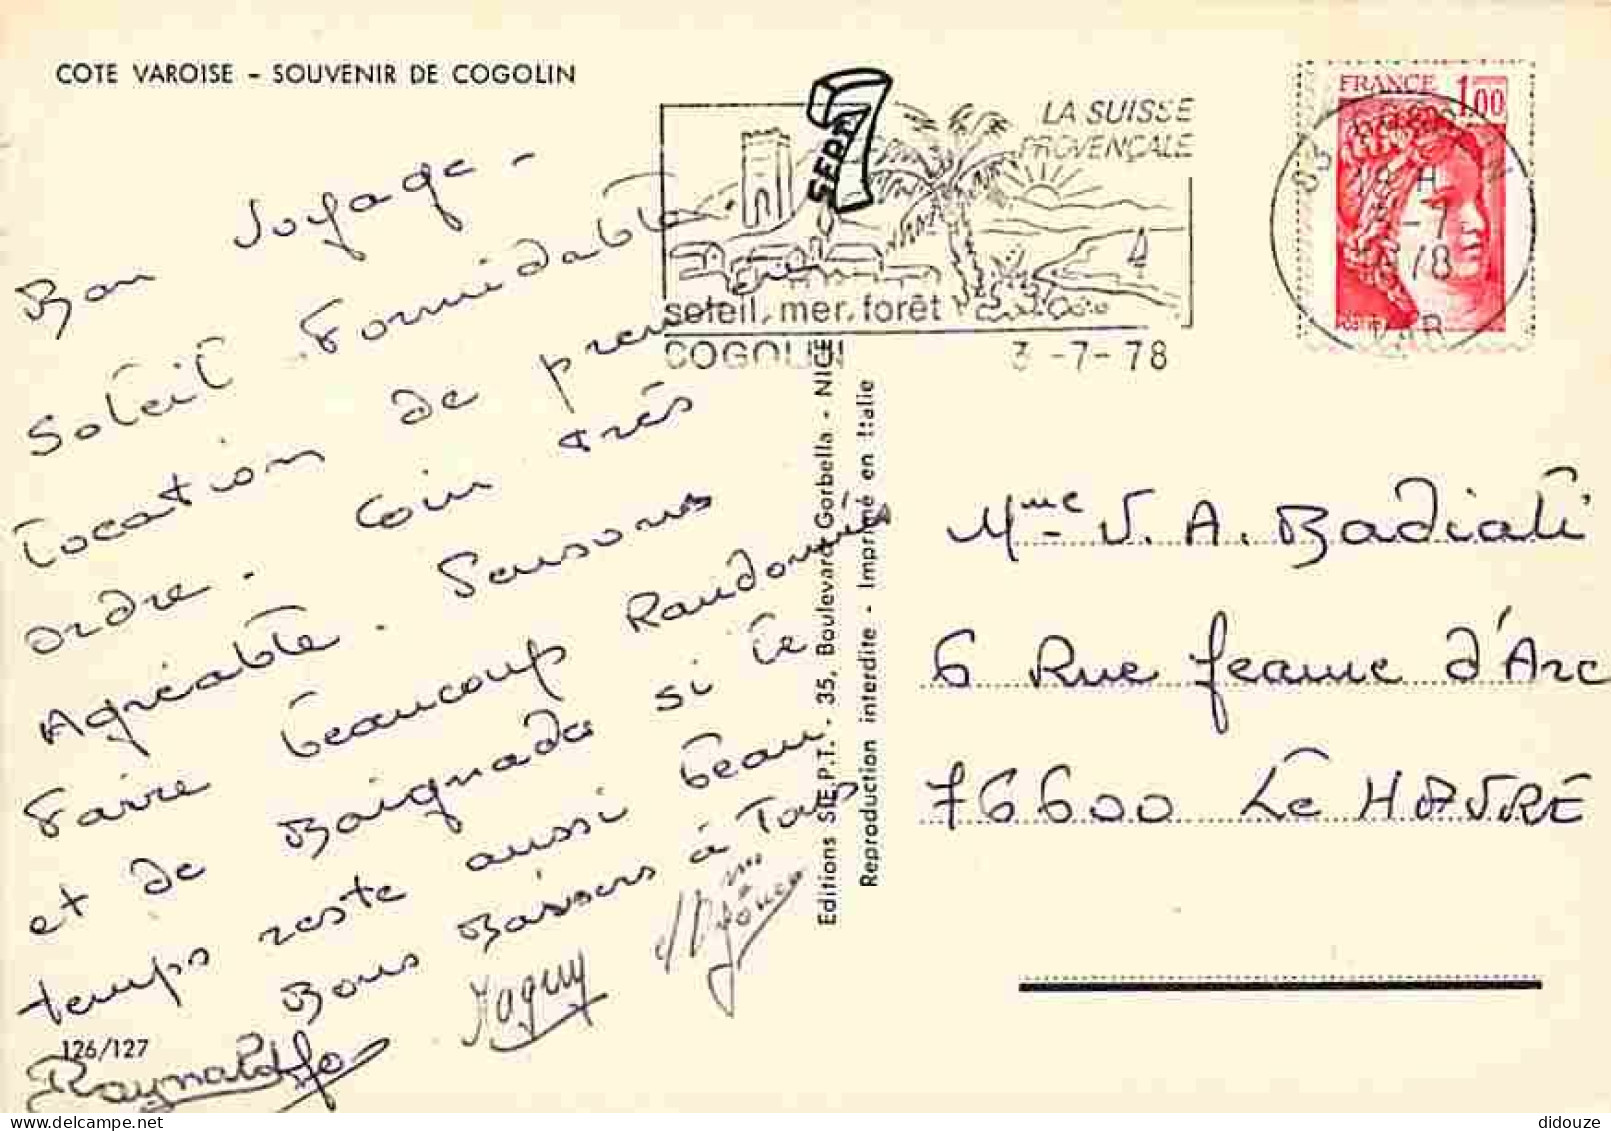 COTE VAROISE - SOUVENIR DE COGOLIN
Bon Voyage -
Soleil Formidable.
Location de premier
ordre. Coin très
Agréable. Pensons
Faire beaucoup Randonnées
et de Baignade si le
temps reste aussi beau
Bons Baisers à Tous
Raynald Jo
Maguy
126/127
Editions SEPT. - 35, Boulevard Gorbella - NICE
Reproduction interdite - Imprimé en Italie
SEPT
7
LA SUISSE
PROVENÇALE
soleil, mer, forêt
COGOLIN
3 -7-78
FRANCE 1,00
83 COGOLIN
18 H
3 -7
1978
VAR
Mme V. A. Badiali
6 Rue Jeanne d'Arc
76600 Le HAVRE
didouze